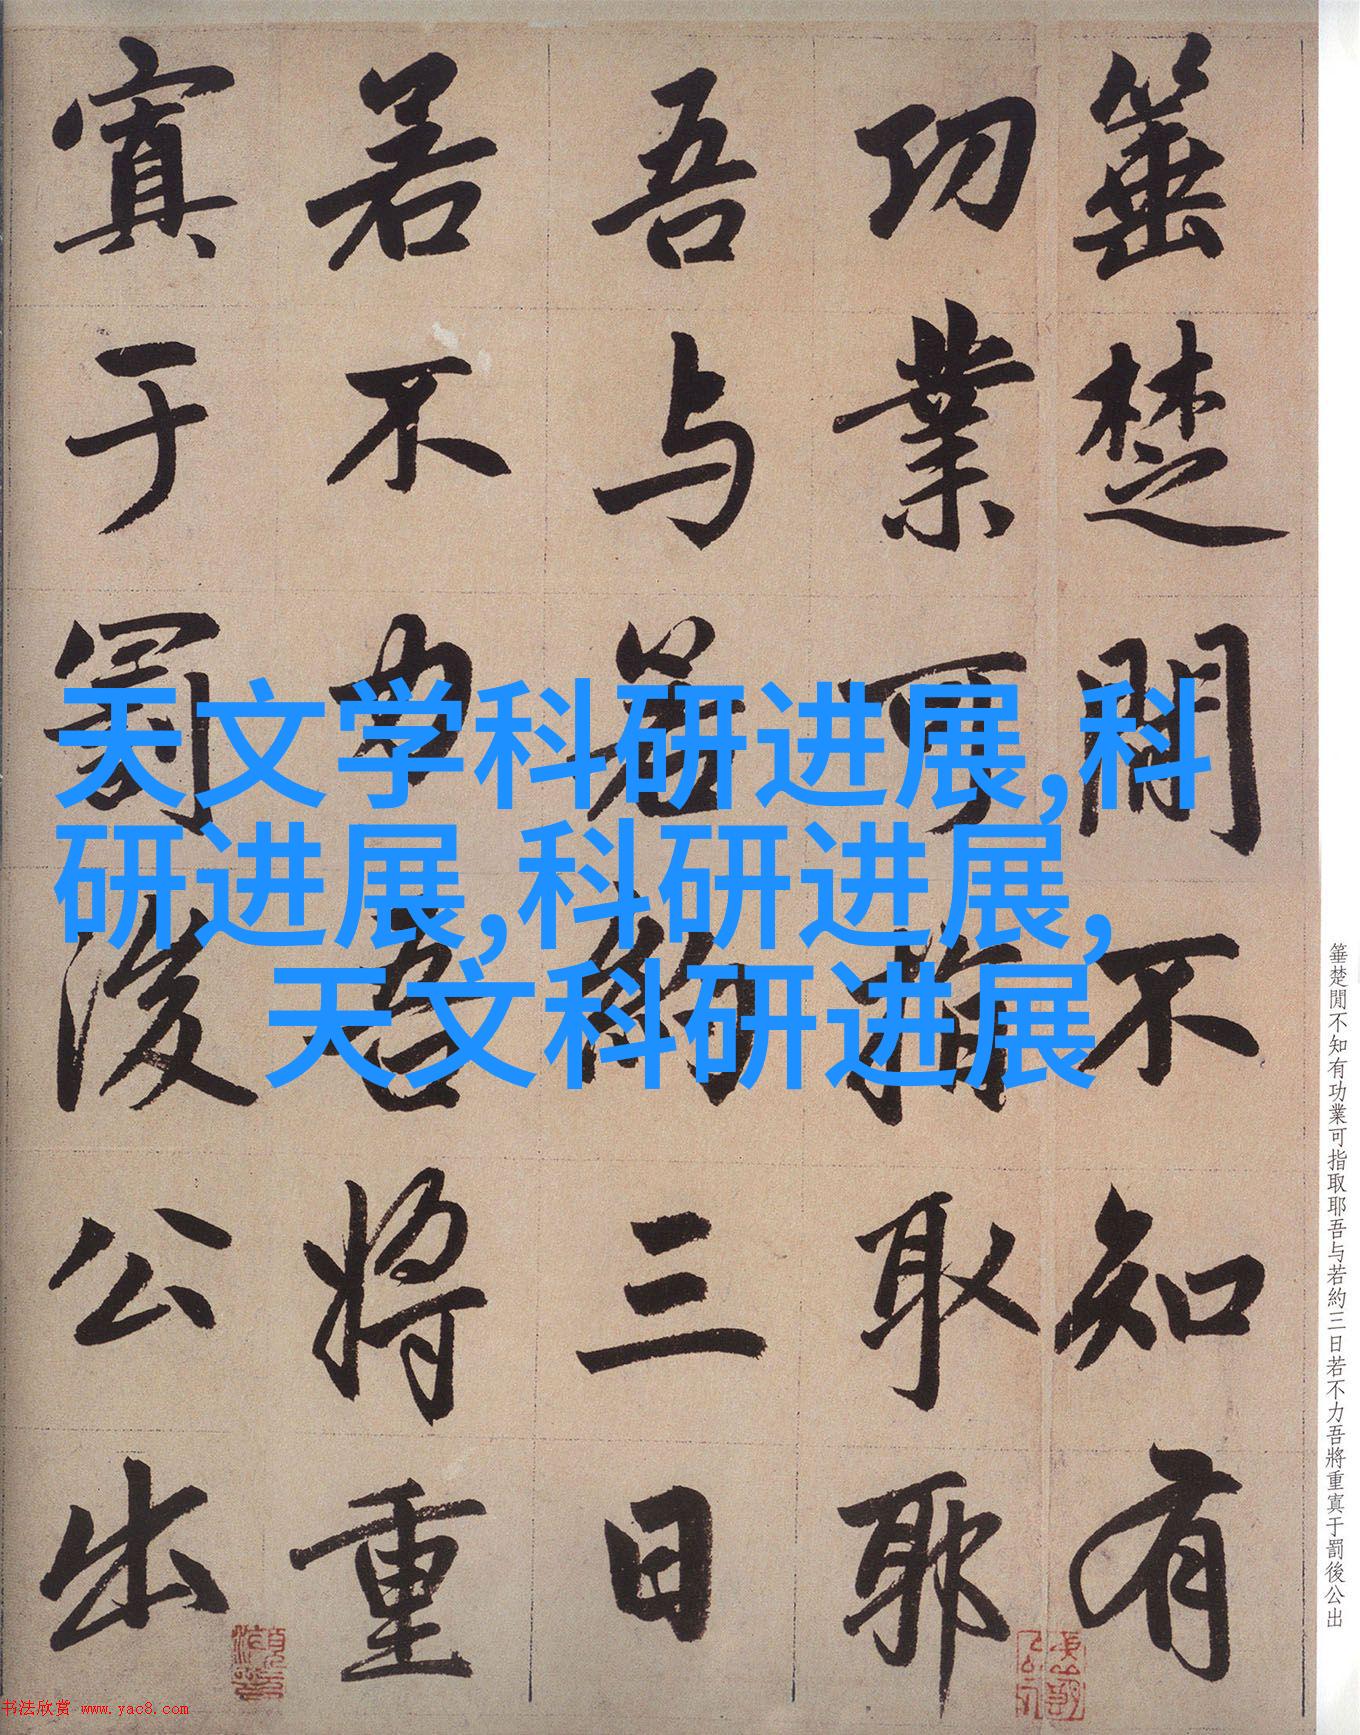 天文学科研进展,科
研进展,科研进展,
天文科研进展
箠楚閒不知有
功業可指取耶
吾与若約三日
若不力吾將重
寘于罰後公出
箠楚閒不知有功業可指取耶吾与若約三日若不力吾將重寘于罰後公出
书法欣赏 www.yac8.com